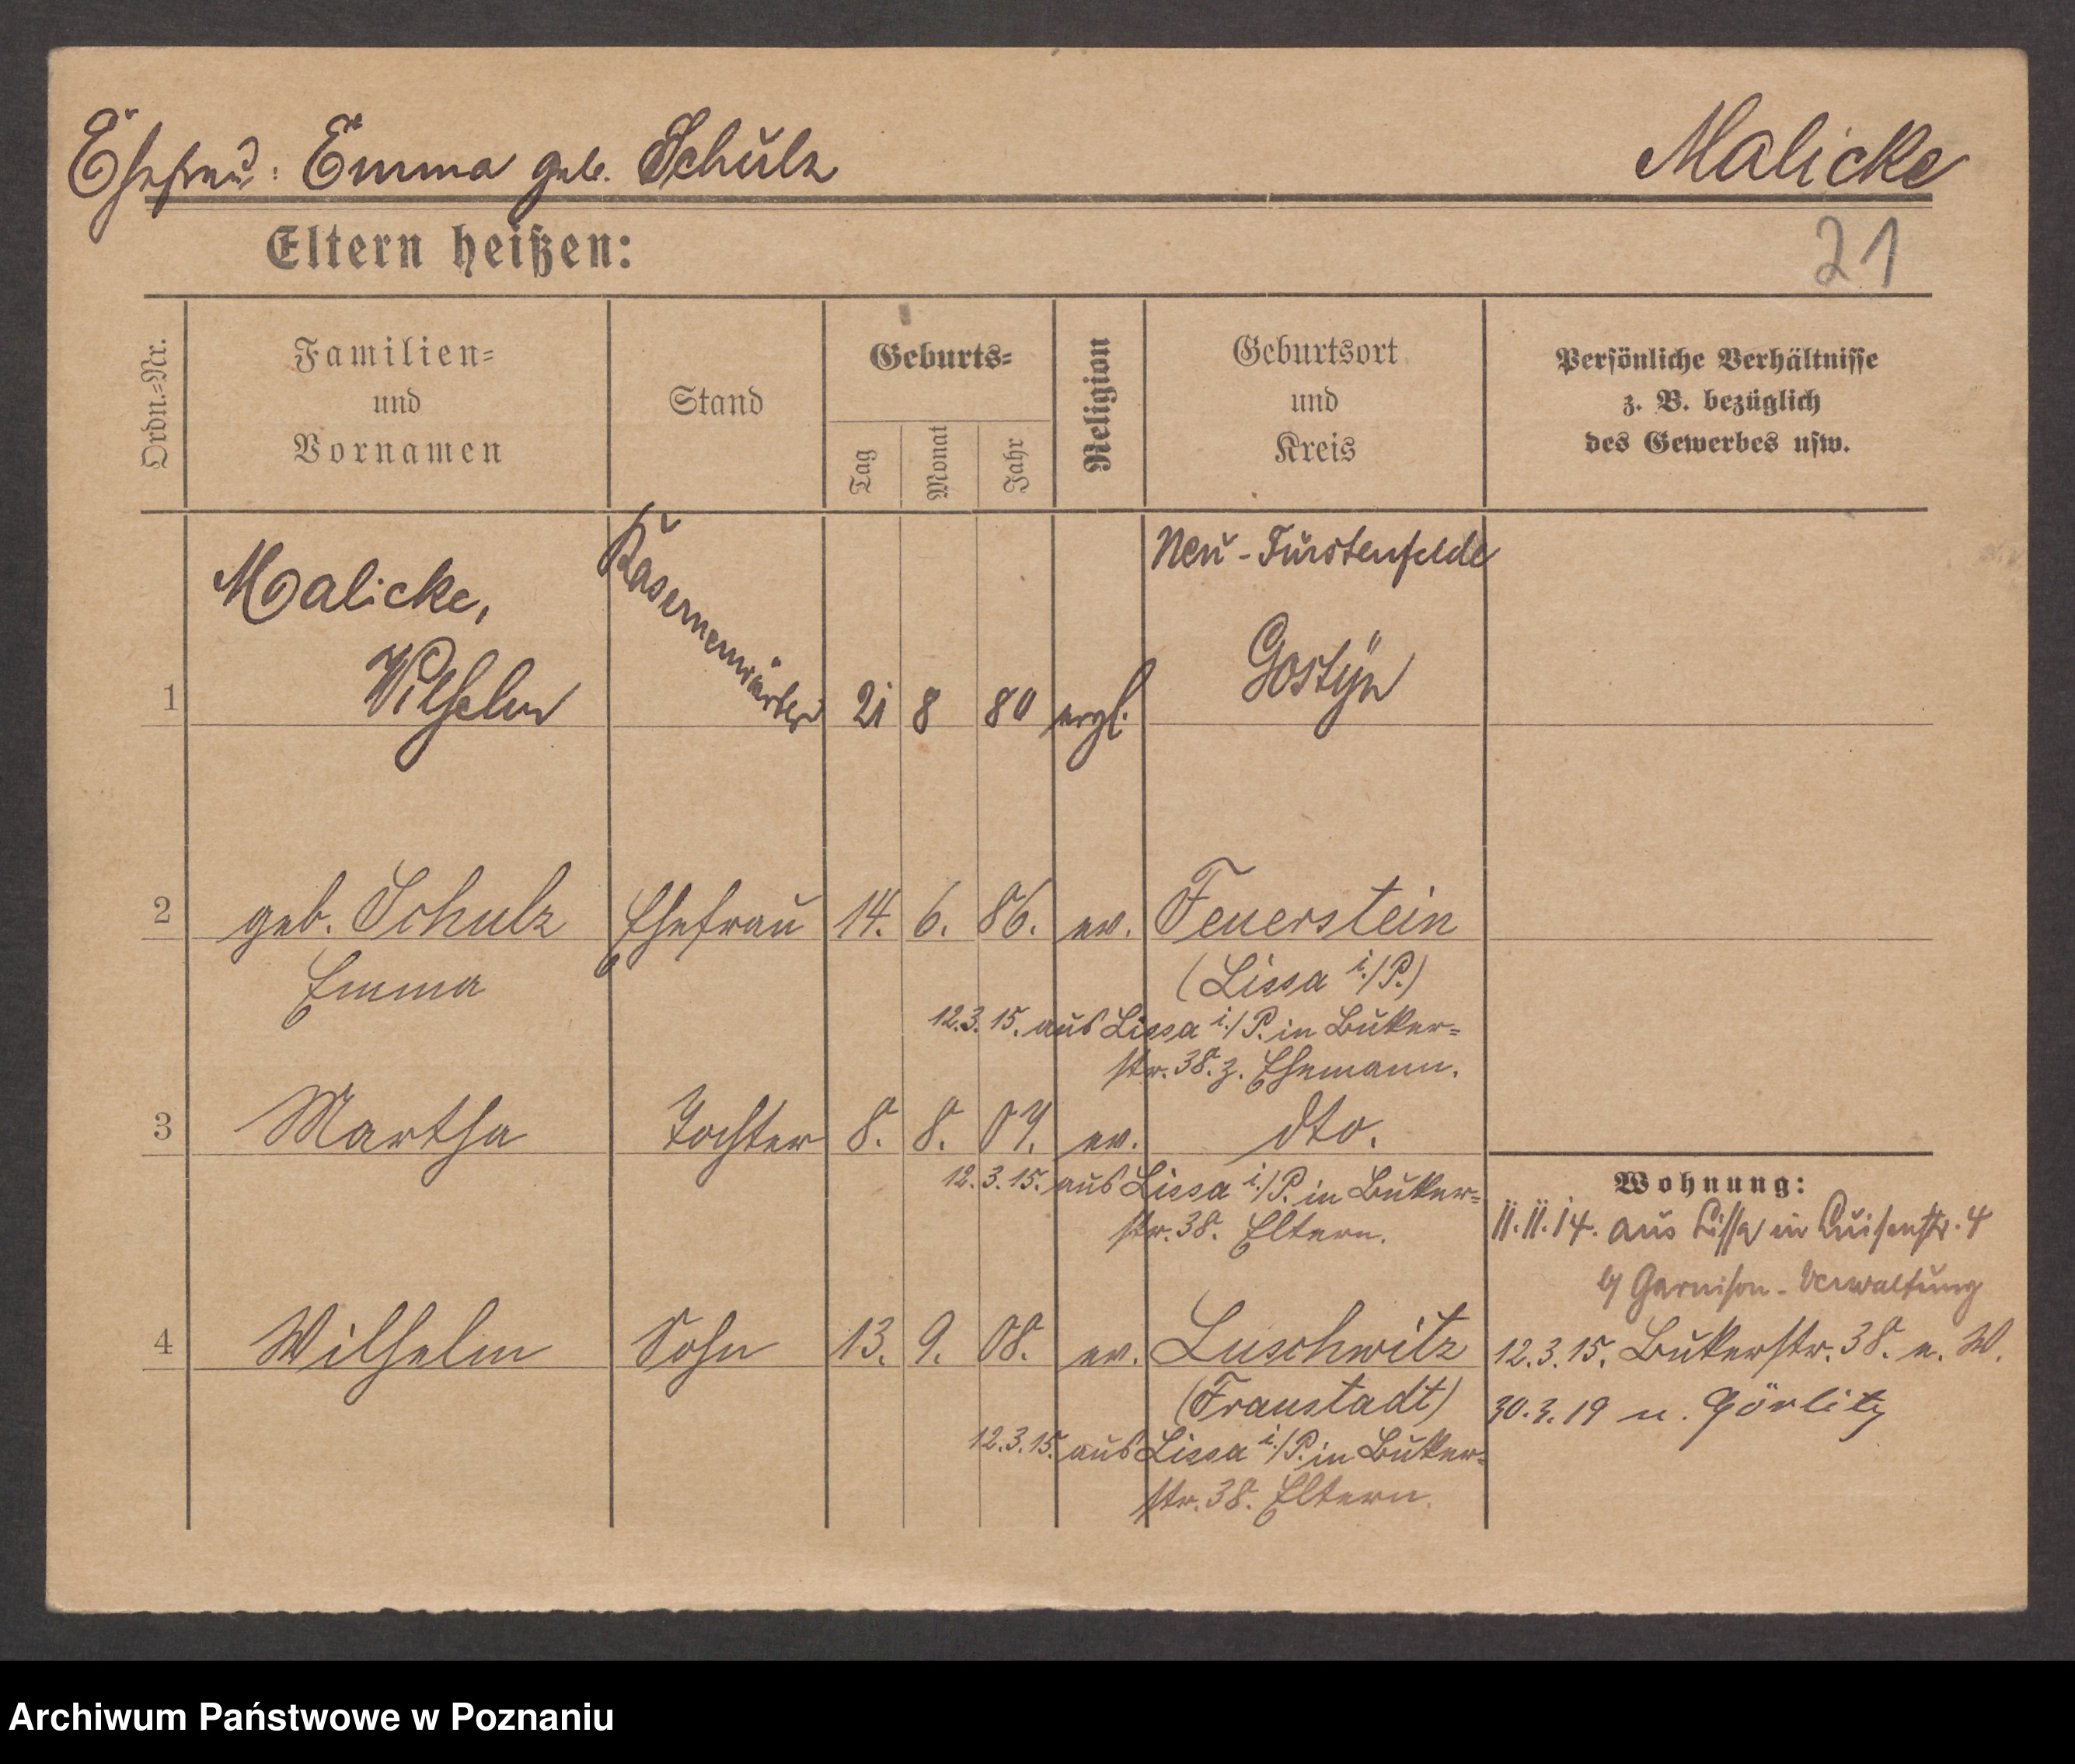 Ehefrau: Emma geb. Schulz
Malicke
Eltern heißen:
21
Ordn.=Nr.
Familien=
und
Vornamen
Stand
Geburts=
Tag
Monat
Jahr
Religion
Geburtsort
und
Kreis
Persönliche Verhältnisse
z. B. bezüglich
des Gewerbes usw.
1
Malicke,
Wilhelm
Kasernenwärter
21 8 80
Neu-Fürstenfelde
Gostyn
2 geb. Schulz Ehefrau 14. 6. 86. ev. Feuerstein
Emma
(Lissa i./P.)
12.3.15. aus Lissa i./P. in Buker=
str. 38. z. Ehemann.
3 Martha Tochter 8. 8. 07. ev. dto.
12.3.15. aus Lissa i./P. in Buker=
str. 38. Eltern.
4 Wilhelm Sohn 13. 9. 08. ev. Luschwitz
(Fraustadt)
12.3.15. aus Lissa i./P. in Buker=
str. 38. Eltern.
Wohnung:
11.11.14. aus Lissa in Luisenstr. 4
b/ Garnison-Verwaltung
12.3.15. Bukerstr. 38. e. W.
30.3.19 n. Görlitz
Archiwum Państwowe w Poznaniu